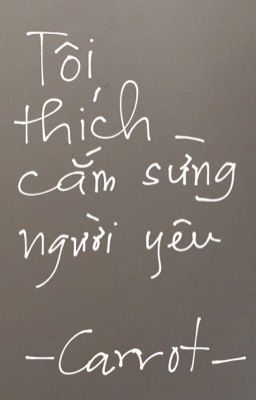 Tôi
thích
cắm sừng
người yêu
-Carrot-